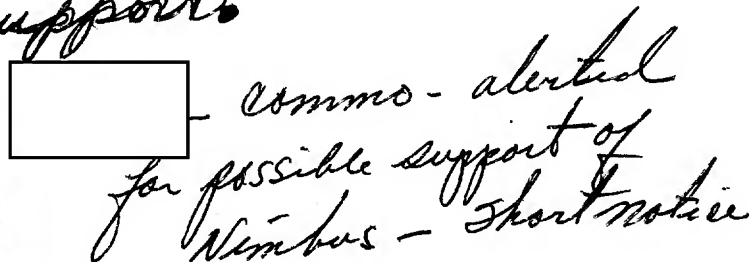 support.
- commo - alerted
for possible support of
Nimbus - Short notice